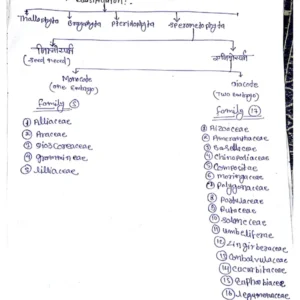 Classification:
Thallophyta Bryophyta Pteridophyta Spermetophyta
(Seed Need)
Monocots
(one Embryo)
Family (5)
① Alliaceae
② Araceae
③ Dioscoreaceae
④ grammineae
⑤ Lilliaceae
Diacots
(Two Embryo)
Family (17)
① Aizoceae
② Amerantaceae
③ Basellaceae
④ Chinopodiaceae
⑤ Compositae
⑥ Moringaceae
⑦ Polygonaceae
⑧ Portulaceae
⑨ Rutaceae
⑩ Solamceae
⑪ Umbeliferne
⑫ Zingirbezaceae
⑬ Conbalvulaceae
⑭ Cucurbitaceae
⑮ Euphobiaceae
⑯ Legumonaceae